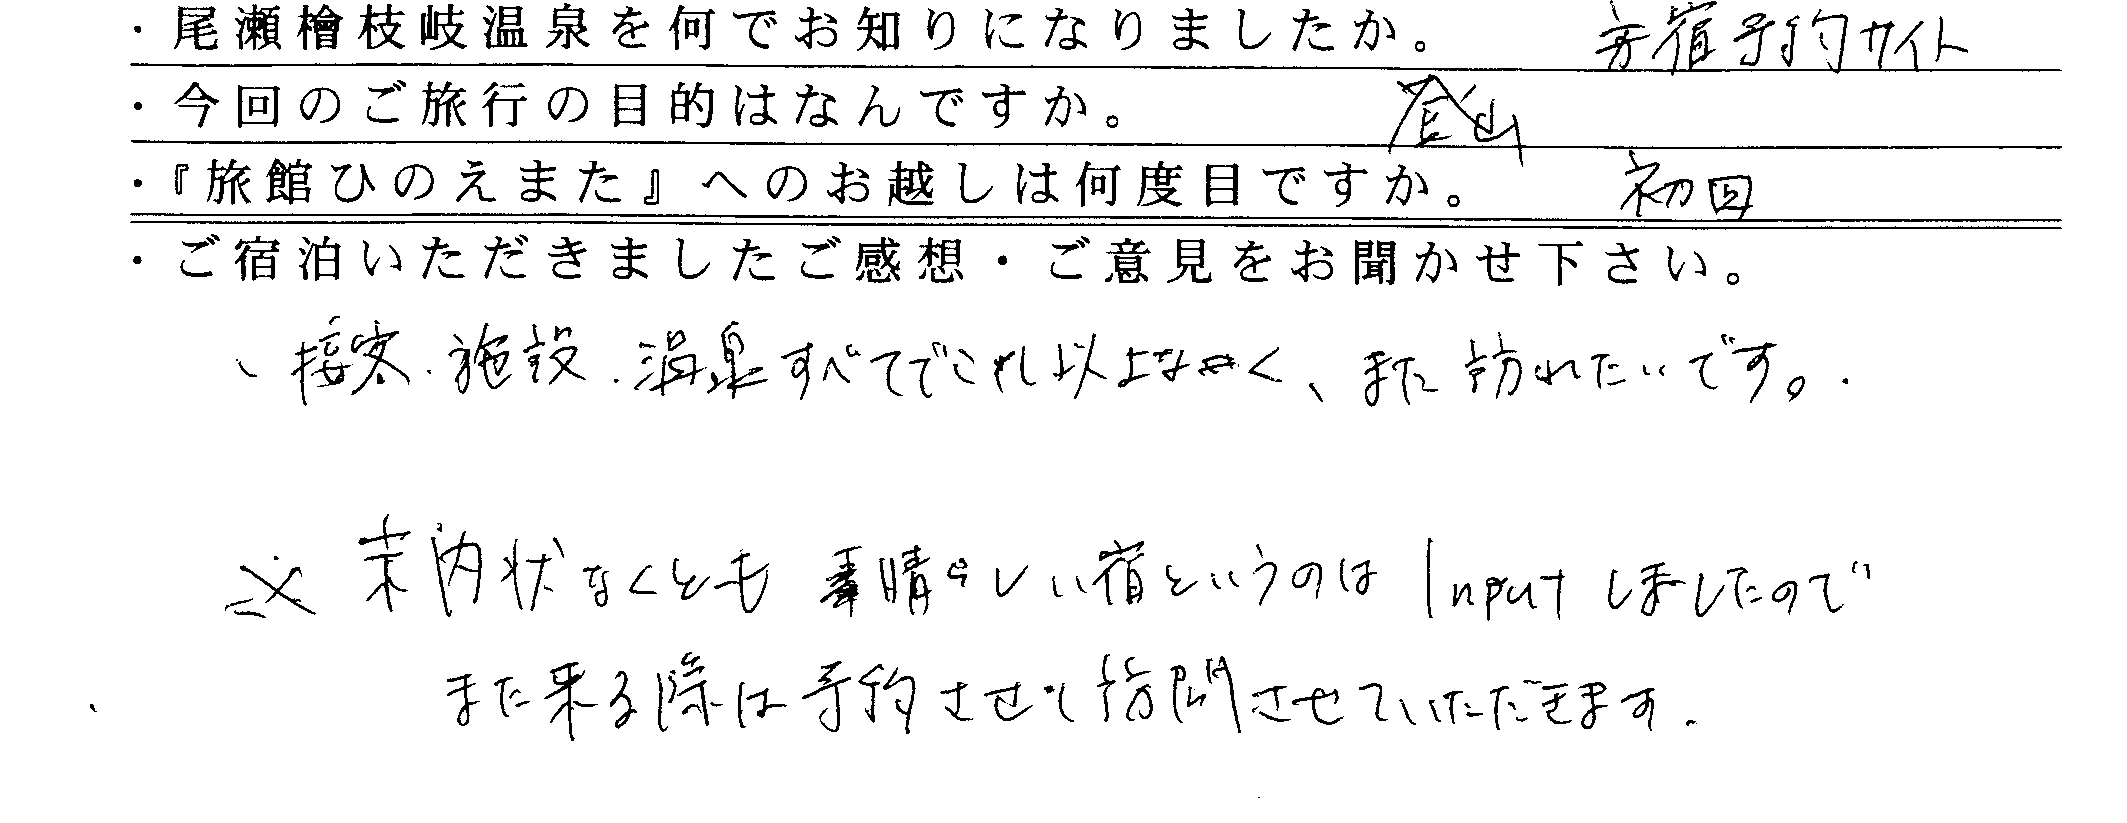 ・尾瀬檜枝岐温泉を何でお知りになりましたか。 宿予約サイト
・今回のご旅行の目的はなんですか。 登山
・『旅館ひのえまた』へのお越しは何度目ですか。 初回
・ご宿泊いただきましたご感想・ご意見をお聞かせ下さい。
、接客・施設・温泉すべてでこれ以上なく、また訪れたいです。
※案内状なくとも素晴らしい宿というのはInputしましたので
また来る際は予約させて訪問させていただきます。